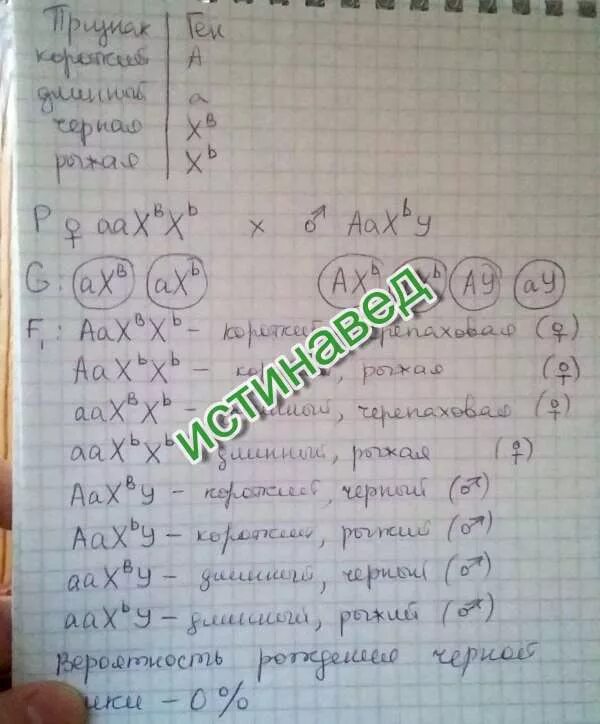 Признак Ген
короткий А
длинный а
черная Xᴮ
рыжая Xᵇ
P ♀ aaXᴮXᵇ x ♂ AaXᵇY
G: aXᴮ aXᵇ AXᵇ Xᵇ AY aY
F₁: AaXᴮXᵇ – короткий черепаховая (♀)
AaXᵇXᵇ – рыжая (♀)
aaXᴮXᵇ – черепаховая (♀)
aaXᵇXᵇ – длинный, рыжая (♀)
AaXᴮY – короткий, черный (♂)
AaXᵇY – короткий, рыжий (♂)
aaXᴮY – длинный, черный (♂)
aaXᵇY – длинный, рыжий (♂)
Вероятность рождения черной
– 0%
истинавед